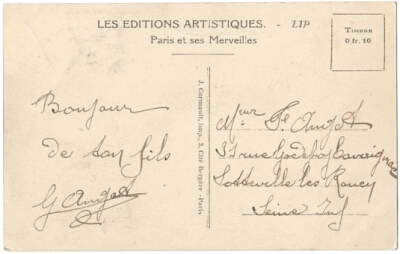 LES EDITIONS ARTISTIQUES. - LIP
Paris et ses Merveilles
TIMBRE
0 fr. 10
Bonjour
de ton fils
G Angot
J. Cormault, imp., 3, Cité Bergère -Paris
Mr Angot
37 rue Godefroy Cavaignac
Sotteville les Rouen
Seine Inf